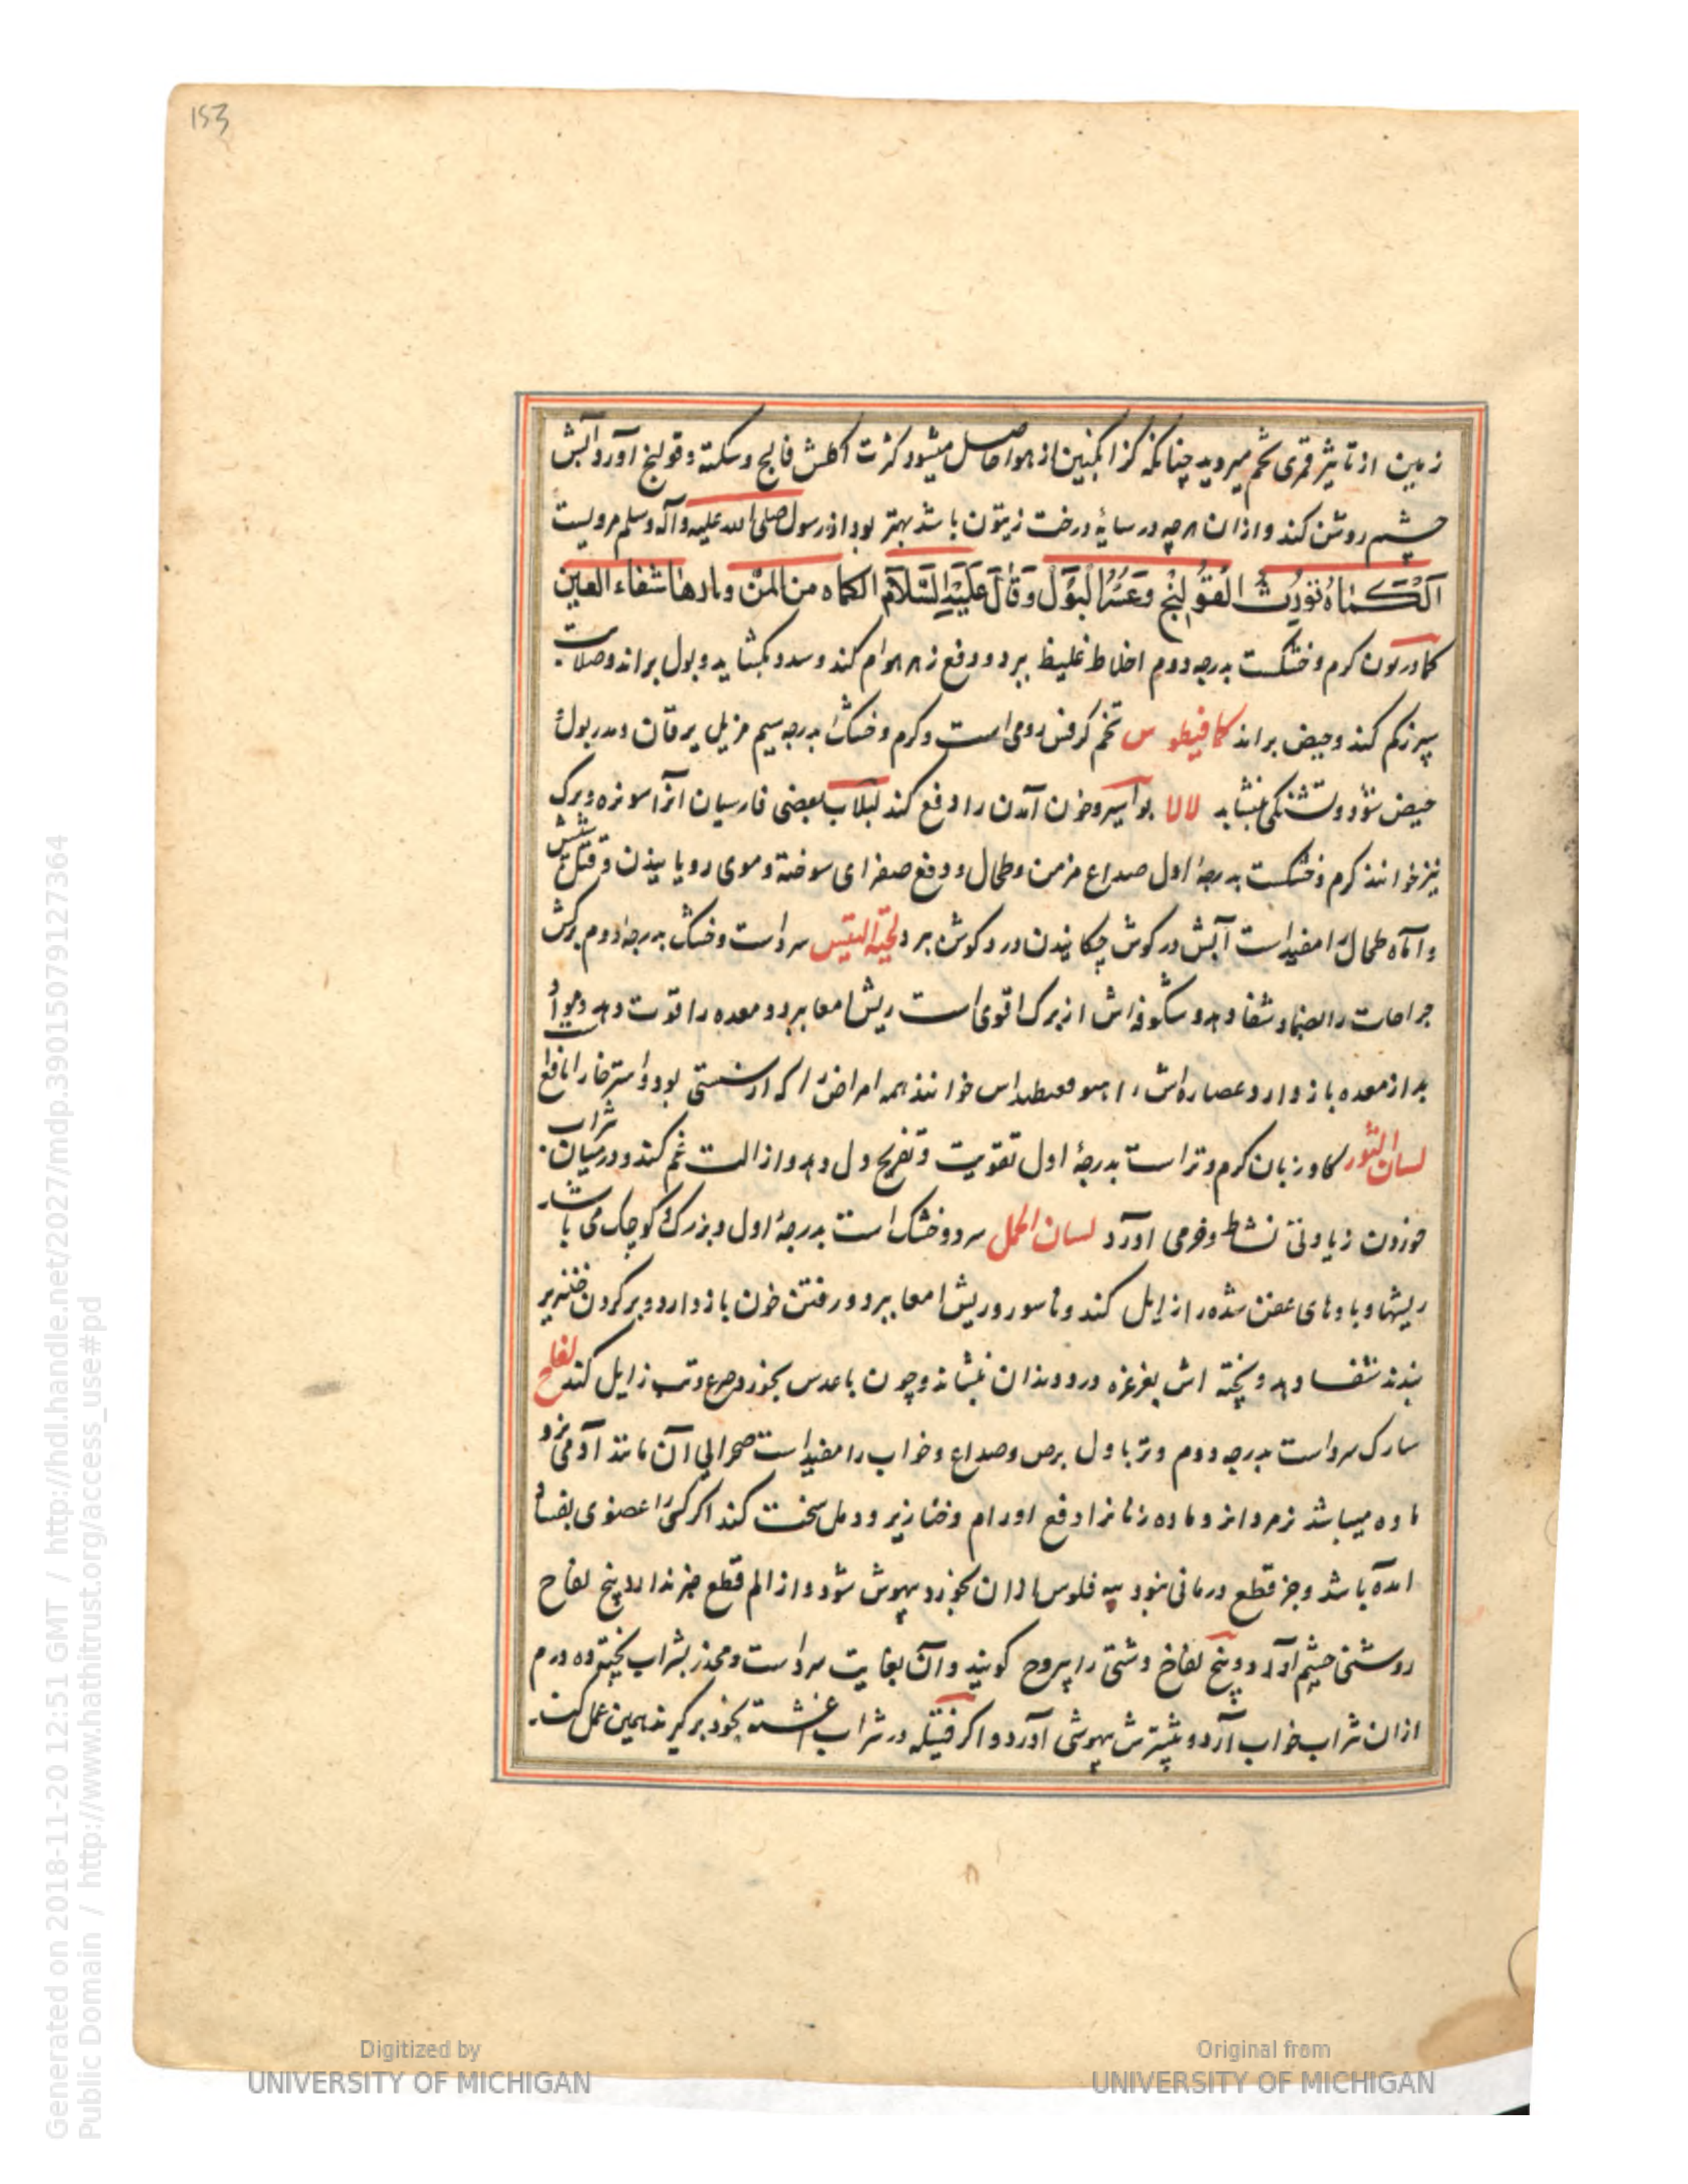 153
زمین از تاثیر قمری تخم میروید چنانکه گزانگبین از هوا حاصل میشود کثرت اکلش فالج و سکته و قولنج آورد آبش
چشم روشن کند و ازان هرچه در سایهٔ درخت زیتون باشد بهتر بود از رسول صلی الله علیه وآله وسلم مرویست
اَلْكَماَةُ تُورِثُ الْقُوْلِنْجِ وَعَسُرُ الْبَوْلَ وَقَالَ عَلَيْهِ السَّلَامَ الكماه من المن وماءها شفاء العين
کمادریون کرم و خشکست بدرجه دوم اخلاط غلیظ ببرد و دفع زهر هوام کند و سدد بکشاید و بول براند و صلابت
سپرز کم کند و حیض براند کمافیطوس تخم کرفس رومی است و کرم و خشک بدرجه سیم مزیل یرقان و مدر بول و
حیض شود و تشنکی بنشاند لالا بواسیر و خون آمدن را دفع کند لبلاب بعضی فارسیان آنرا برک
نیز خوانند کرم و خشکست بدرجهٔ اول صداع مزمن و طحال و دفع صفرای سوخته و موی رویانیدن و قتل شپش
و آماه طحال را مفید است آبش در کوش چکانیدن درد کوش برد لحیة التیس سرد است و خشک بدرجهٔ دوم برکش
جراحات را بضماد شفا دهد و شکوفه‌اش از برک اقوی است ریش امعا ببرد و معده را قوت دهد و مواد
بد از معده باز دارد و عصاره‌اش را خوانند همه امراض را که از سستی بود و استرخا را نافع
لسان الثور کاو زبان کرم و تر است بدرجهٔ اول تقویت و تفریح دل دهد و ازالت غم کند و در میان شراب
خوردن زیادتی نشاط و خرمی آورد لسان الحمل سرد و خشک است بدرجهٔ اول و بزرک و کوچک می باشد
ریشها و بادهای عفن شده را زایل کند و ناسور و ریش امعا ببرد و رفتن خون باز دارد و بر کردن خنزیر
بندند شفا دهد و پخته اش بغرغره درد دندان بنشاند و چون با عدس بخورد صرع و تب زایل کند لفاح
سارک سرد است بدرجه دوم و تر باول برص و صداع و خواب را مفید است صحرایی آن مانند آدمی نر و
ماده میباشد نر مردانرا و ماده زنانرا دفع اورام و خنازیر و دمل سخت کند اکر کسی را عضوی بفساد
امده باشد و جز قطع درمانی نبود سه فلوس ازان بخورد بیهوش شود و از الم قطع خبر ندارد بیخ لفاح
روشنی چشم آورد و بیخ لفاح دشتی را یبروح کویند و آن بغایت سرد است و مخدر بشراب پخته و ده درم
ازان شراب خواب آرد و بیشترش بیهوشی آورد و اکر فتیله در شراب اغشته بخود برکیرند همین عمل کند
Digitized by
UNIVERSITY OF MICHIGAN
Original from
UNIVERSITY OF MICHIGAN
Generated on 2018-11-20 12:51 GMT / http://hdl.handle.net/2027/mdp.39015079127364
Public Domain / http://www.hathitrust.org/access_use#pd